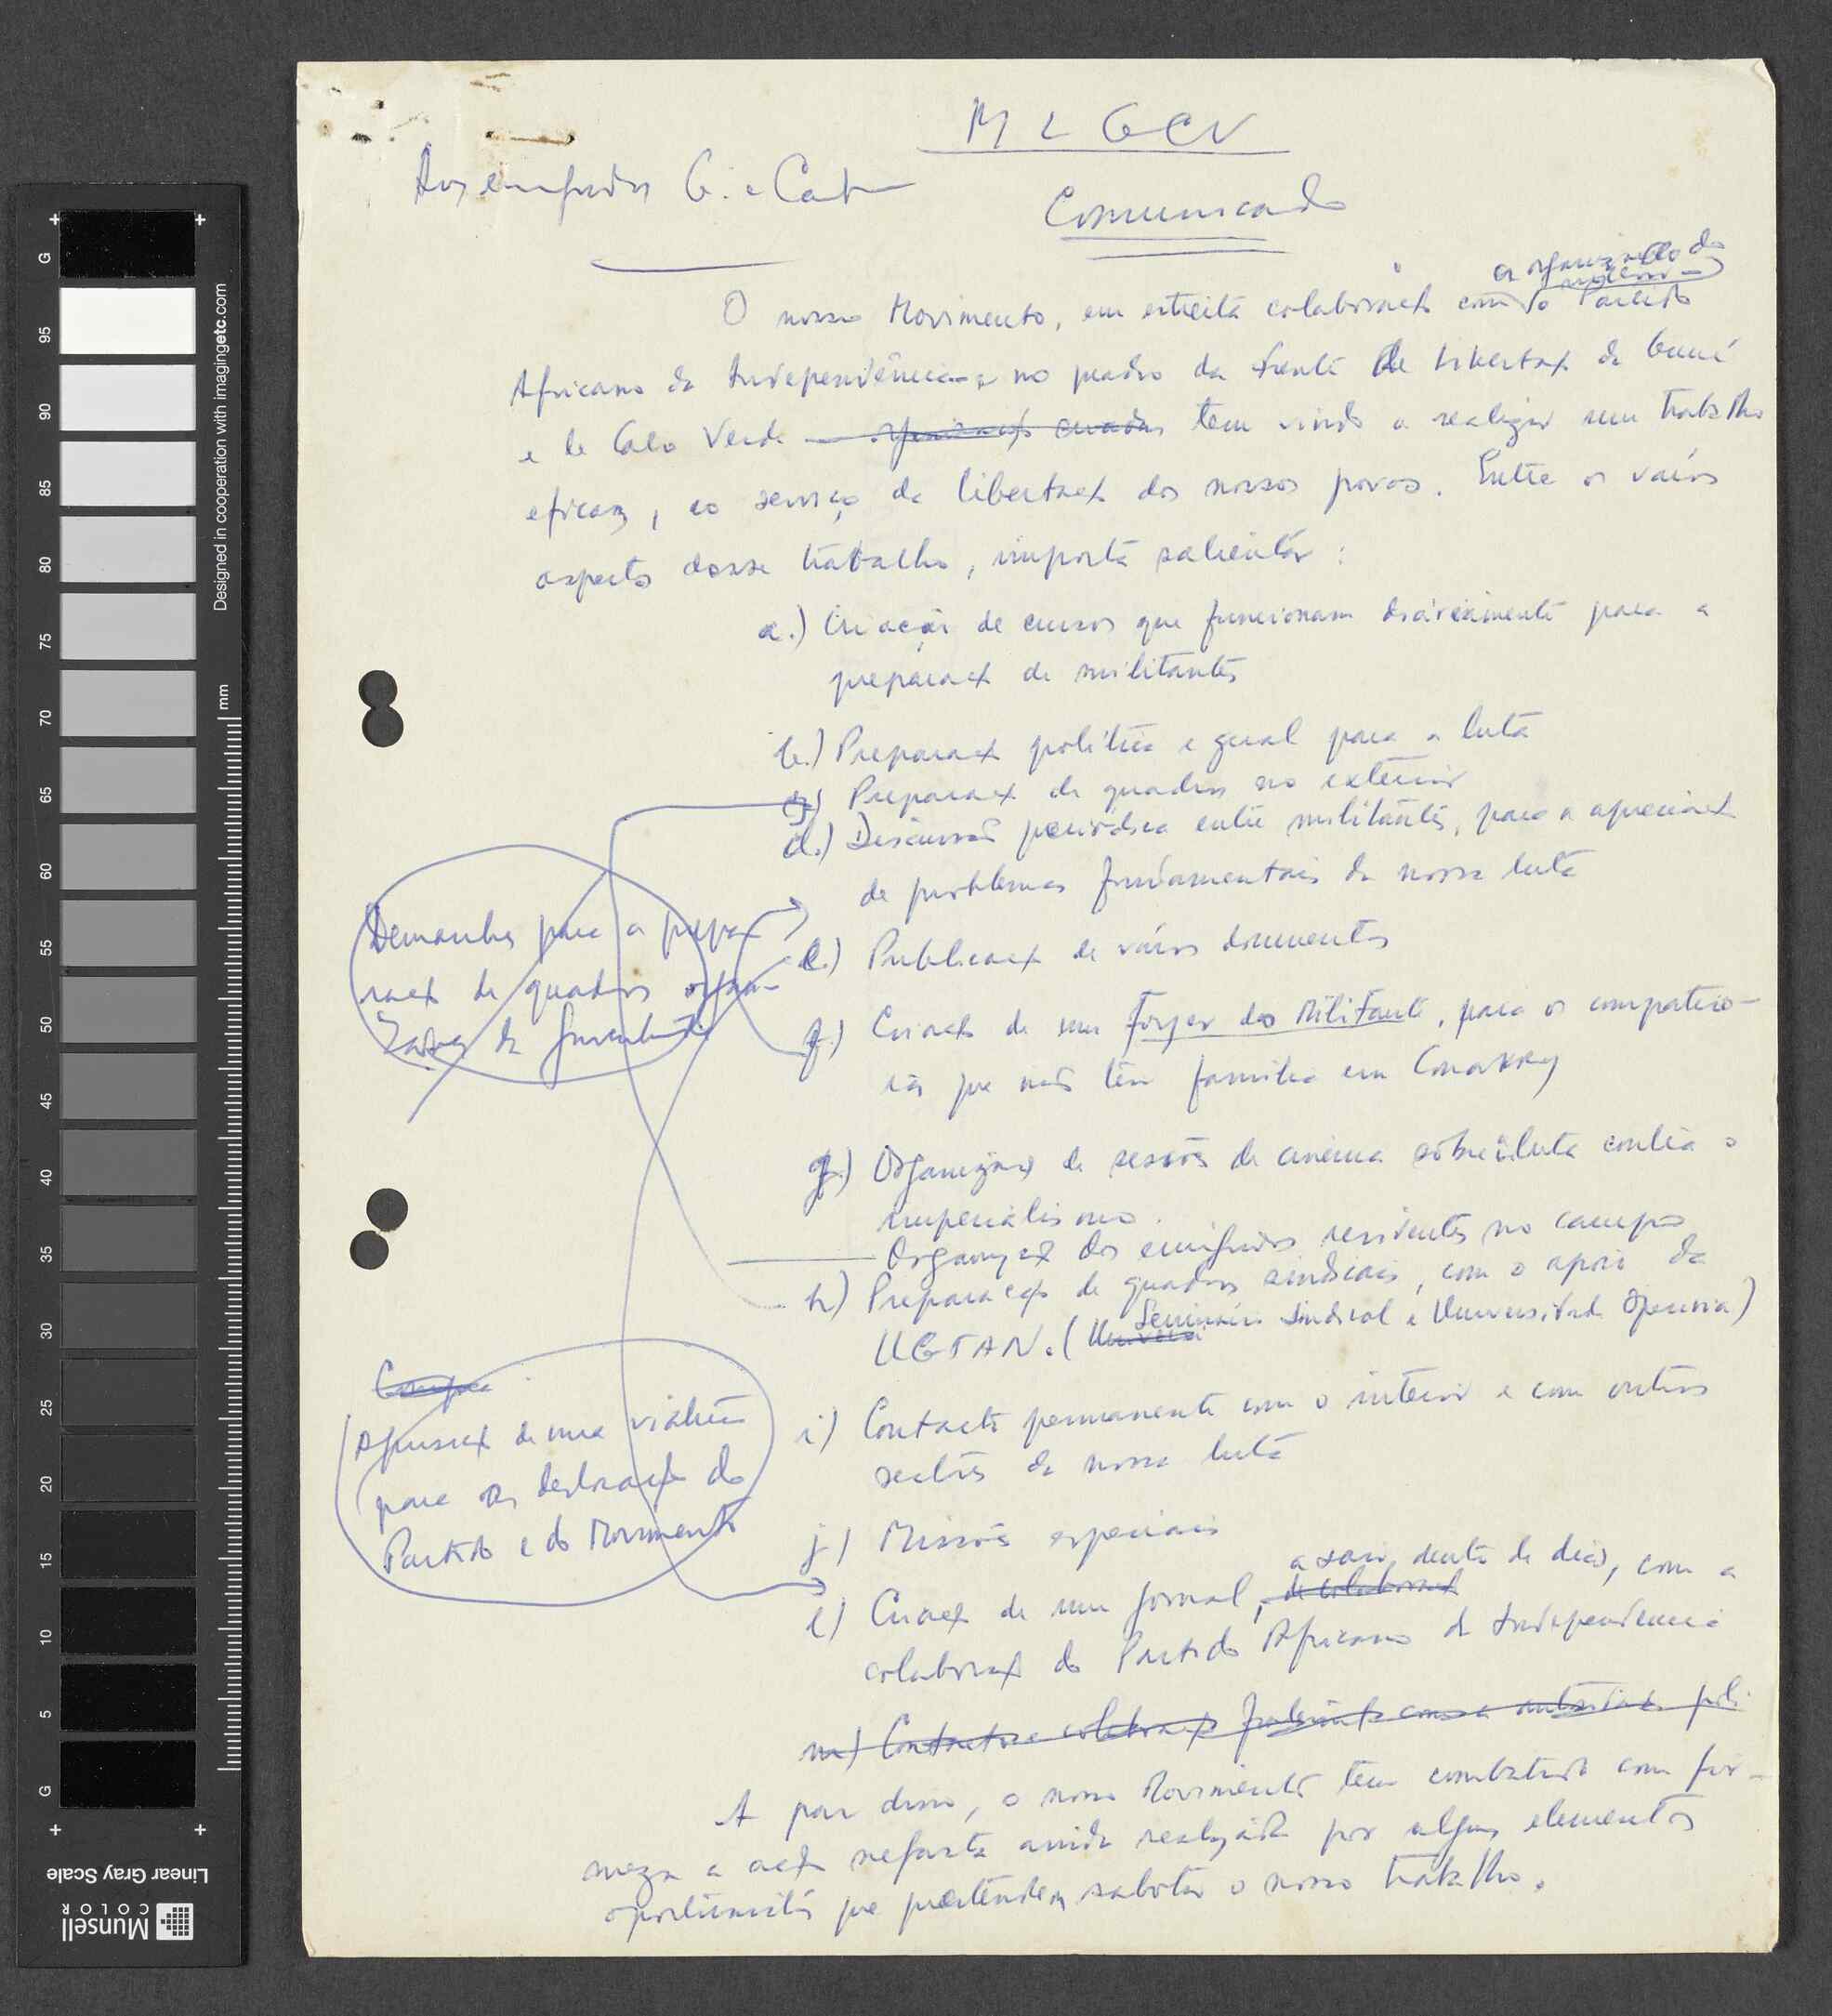 M L G C V
Aos emigrados G. e Cab
Comunicado
a organização do
O nosso Movimento, em estreita colaboraçã com o Partido
Africano da Independência e no quadro da Frente de Libertaçã da Guiné
e de Cabo Verde — organizaçã criada tem vindo a realizar um trabalho
eficaz, ao serviço da libertaçã dos nossos povos. Entre os vários
aspectos desse trabalho, importa salientar :
a.) Criação de cursos que funcionam diàriamente para a
preparaçã de militantes
b.) Preparaçã política e geral para a luta
c) Preparaçã de quadros no exterior
d.) Discussão periódica entre militantes, para a apreciaçã
de problemas fundamentais da nossa luta
Demarches para a prepa
raçã de quadros organi-
da Juventude
e.) Publicaçã de vários documentos
f.) Criaçã de um Foyer dos Militantes, para os compatrio-
tas que não têm família em Conakry
g.) Organizaçã de sessões de cinema sôbre a luta contra o
imperialismo.
Organizaçã dos emigrados residentes no campo
h) Preparaçã de quadros sindicais, com o apoio da
UGTAN. ( Seminário Sindical e Universidade Operária)
i) Contacto permanente com o interior e com outros
sectores da nossa luta
Aquisiçã de uma viatura
para as deslocações do
Partido e do Movimento
j) Missões especiais
a sair, dentro de dias, com a
l) Criaçã de um jornal, de colaboraçã
colaboraçã do Partido Africano da Independência
m) Contactos e colaboraçã com a autoridade poli
A par disso, o nosso Movimento tem combatido com fir-
meza a acçã nefasta ainda realizada por alguns elementos
oportunistas que pretendem sabotar o nosso trabalho.
G
95
90
85
80
75
70
65
60
55
50
45
40
35
30
25
20
15
10
5
G
mm
Designed in cooperation with imagingetc.com
Linear Gray Scale
Munsell
COLOR